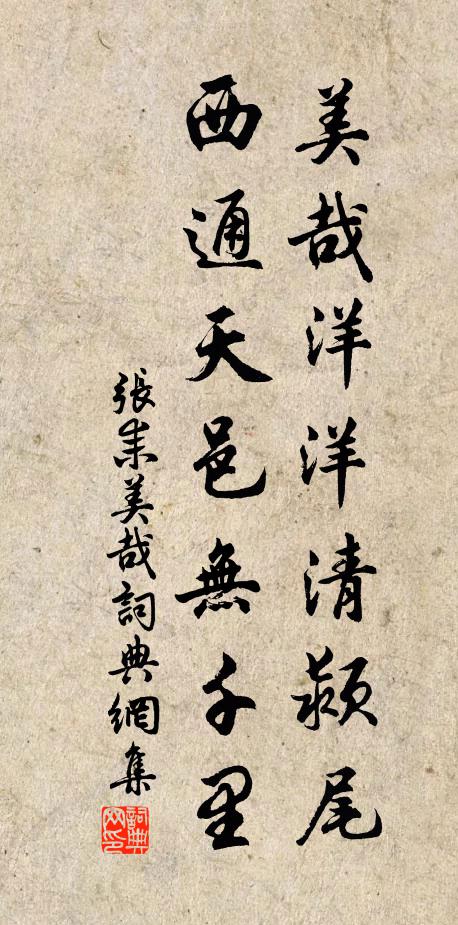 美哉洋洋清潁尾
西通天邑無千里
張耒美哉詞典網集
詞典网印